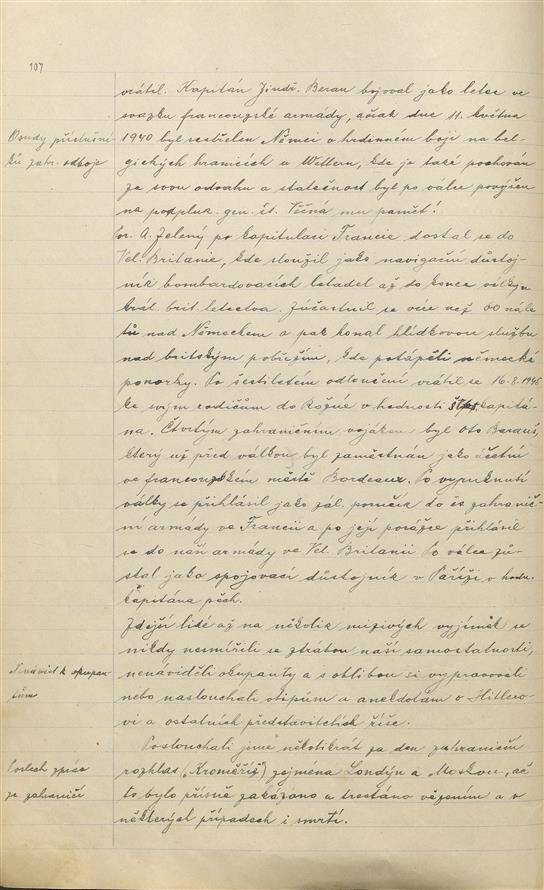 107
vrátil. Kapitán Jindř. Beran bojoval jako letec ve
svazku francouzské armády, avšak dne 11. května
Osudy příslušní-
ků zahr. odboje
1940 byl sestřelen Němci v hrdinném boji na bel-
gických hranicích u Wettern, kde je také pochován
za svou odvahu a statečnost byl po válce povýšen
na podpluk. gen. št. Věčná mu paměť!
por. A. Zelený po kapitulaci Francie dostal se do
Vel. Britanie, kde sloužil jako navigační důstoj-
ník bombardovacích letadel až do konce války u
král. brit. letectva. Zúčastnil se více než 60 nále
tů nad Německem a pak konal hlídkovou službu
nad britským pobřežím, kde potápěli německé
ponorky. Po šestiletém odloučení vrátil se 16.8.1945
ke svým rodičům do Rožné v hodnosti kapitá-
na. Čtvrtým zahraničním vojákem byl Oto Baraus,
který už před válkou byl zaměstnán jako účetní
ve francouzském městě Bordeaux. Po vypuknutí
války se přihlásil jako zál. poručík do čs zahranič-
ní armády ve Francii a po její porážce přihlásil
se do naší armády ve Vel. Britanii Po válce zů-
stal jako spojovací důstojník v Paříži v hodn.
kapitána pěch.
Zdejší lidé až na několik mizivých vyjímek se
nikdy nesmířili se ztrátou naší samostatnosti,
Nenávist k okupan-
tům
nenáviděli okupanty a s oblibou si vypravovali
nebo naslouchali vtipům a anekdotám o Hitlero-
vi a ostatních představitelích říše.
Poslouchali jsme několikrát za den zahraniční
Poslech zpráv
ze zahraničí
rozhlas (Kroměříž) zejména Londýn a Moskvu, ač
to bylo přísně zakázáno a trestáno vězením a v
některých případech i smrtí.